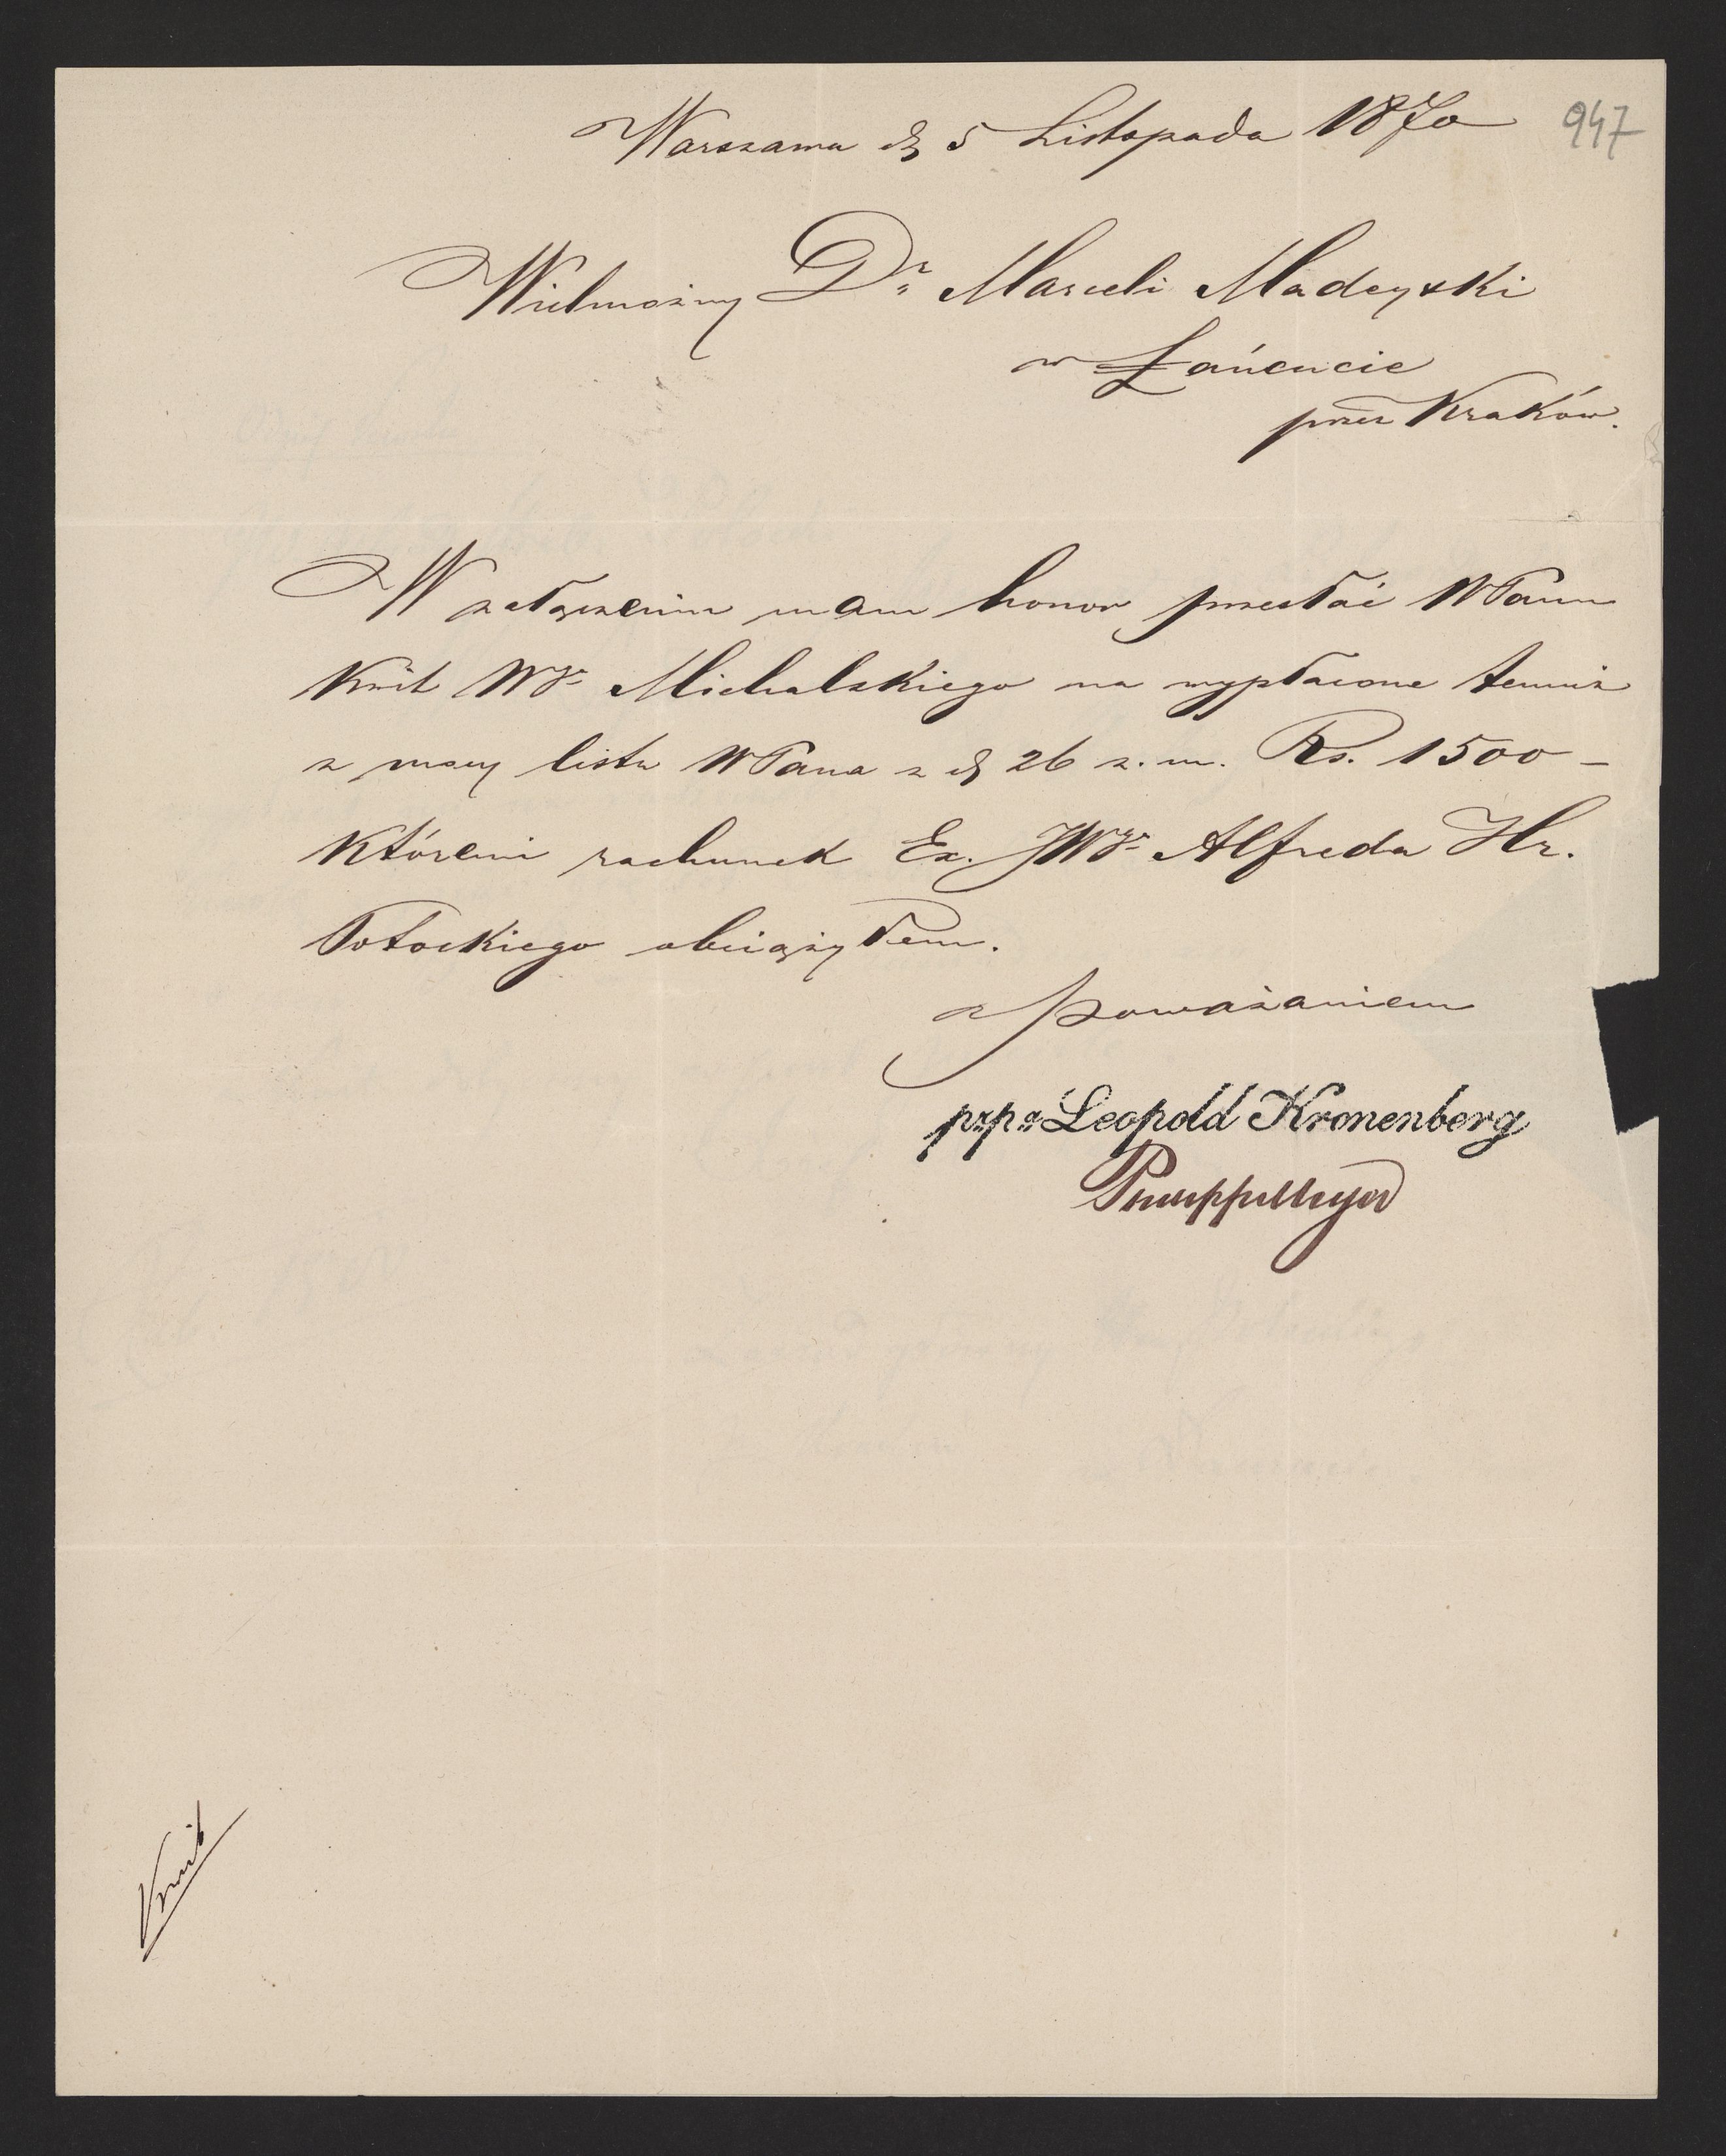 Warszawa d. 5 Listopada 1870
947
Wielmożny Dr. Marceli Madeyski
w Łańcucie
przez Kraków.
W załączeniu mam honor przesłać WPanu
Kwit Wgo Michalskiego na wypłacone temuż
z mocy listu WPana z d. 26 z. m. Rs. 1500 –
któremi rachunek Ex. JWgo Alfreda Hr.
Potockiego obciążyłem.
z poważaniem
p.p.a Leopold Kronenberg
Kwit